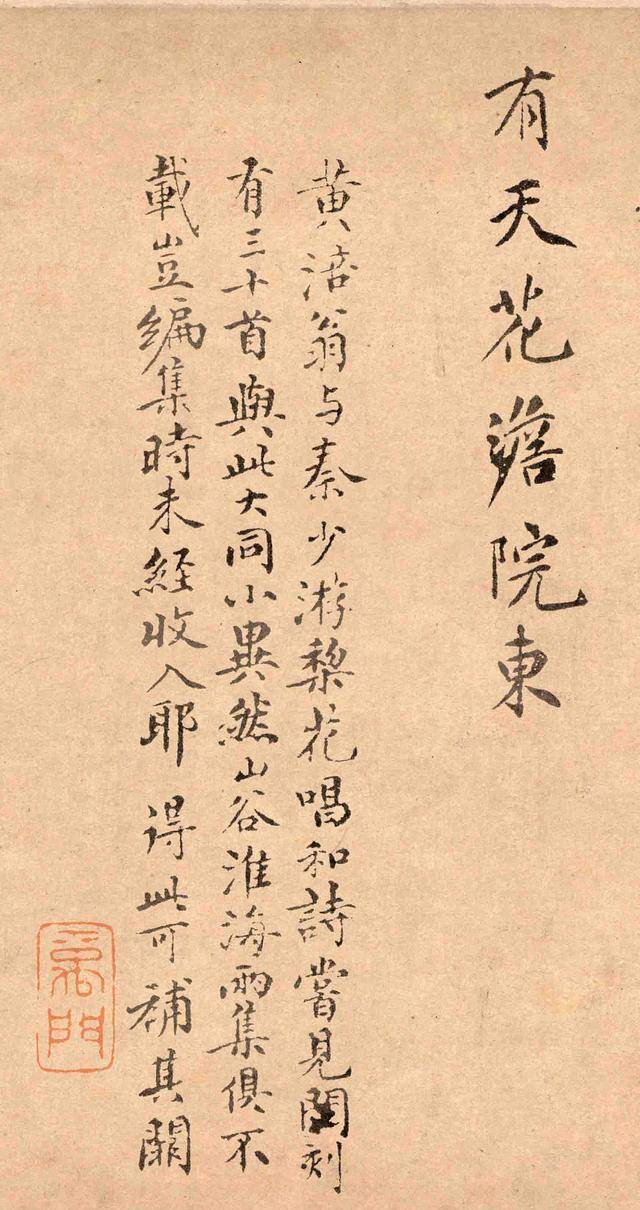 有天花澹院東
黃涪翁与秦少游棃花唱和詩嘗見閩刻
有三十首與此大同小異然山谷淮海兩集俱不
載豈編集時未經收入耶 得此可補其闕